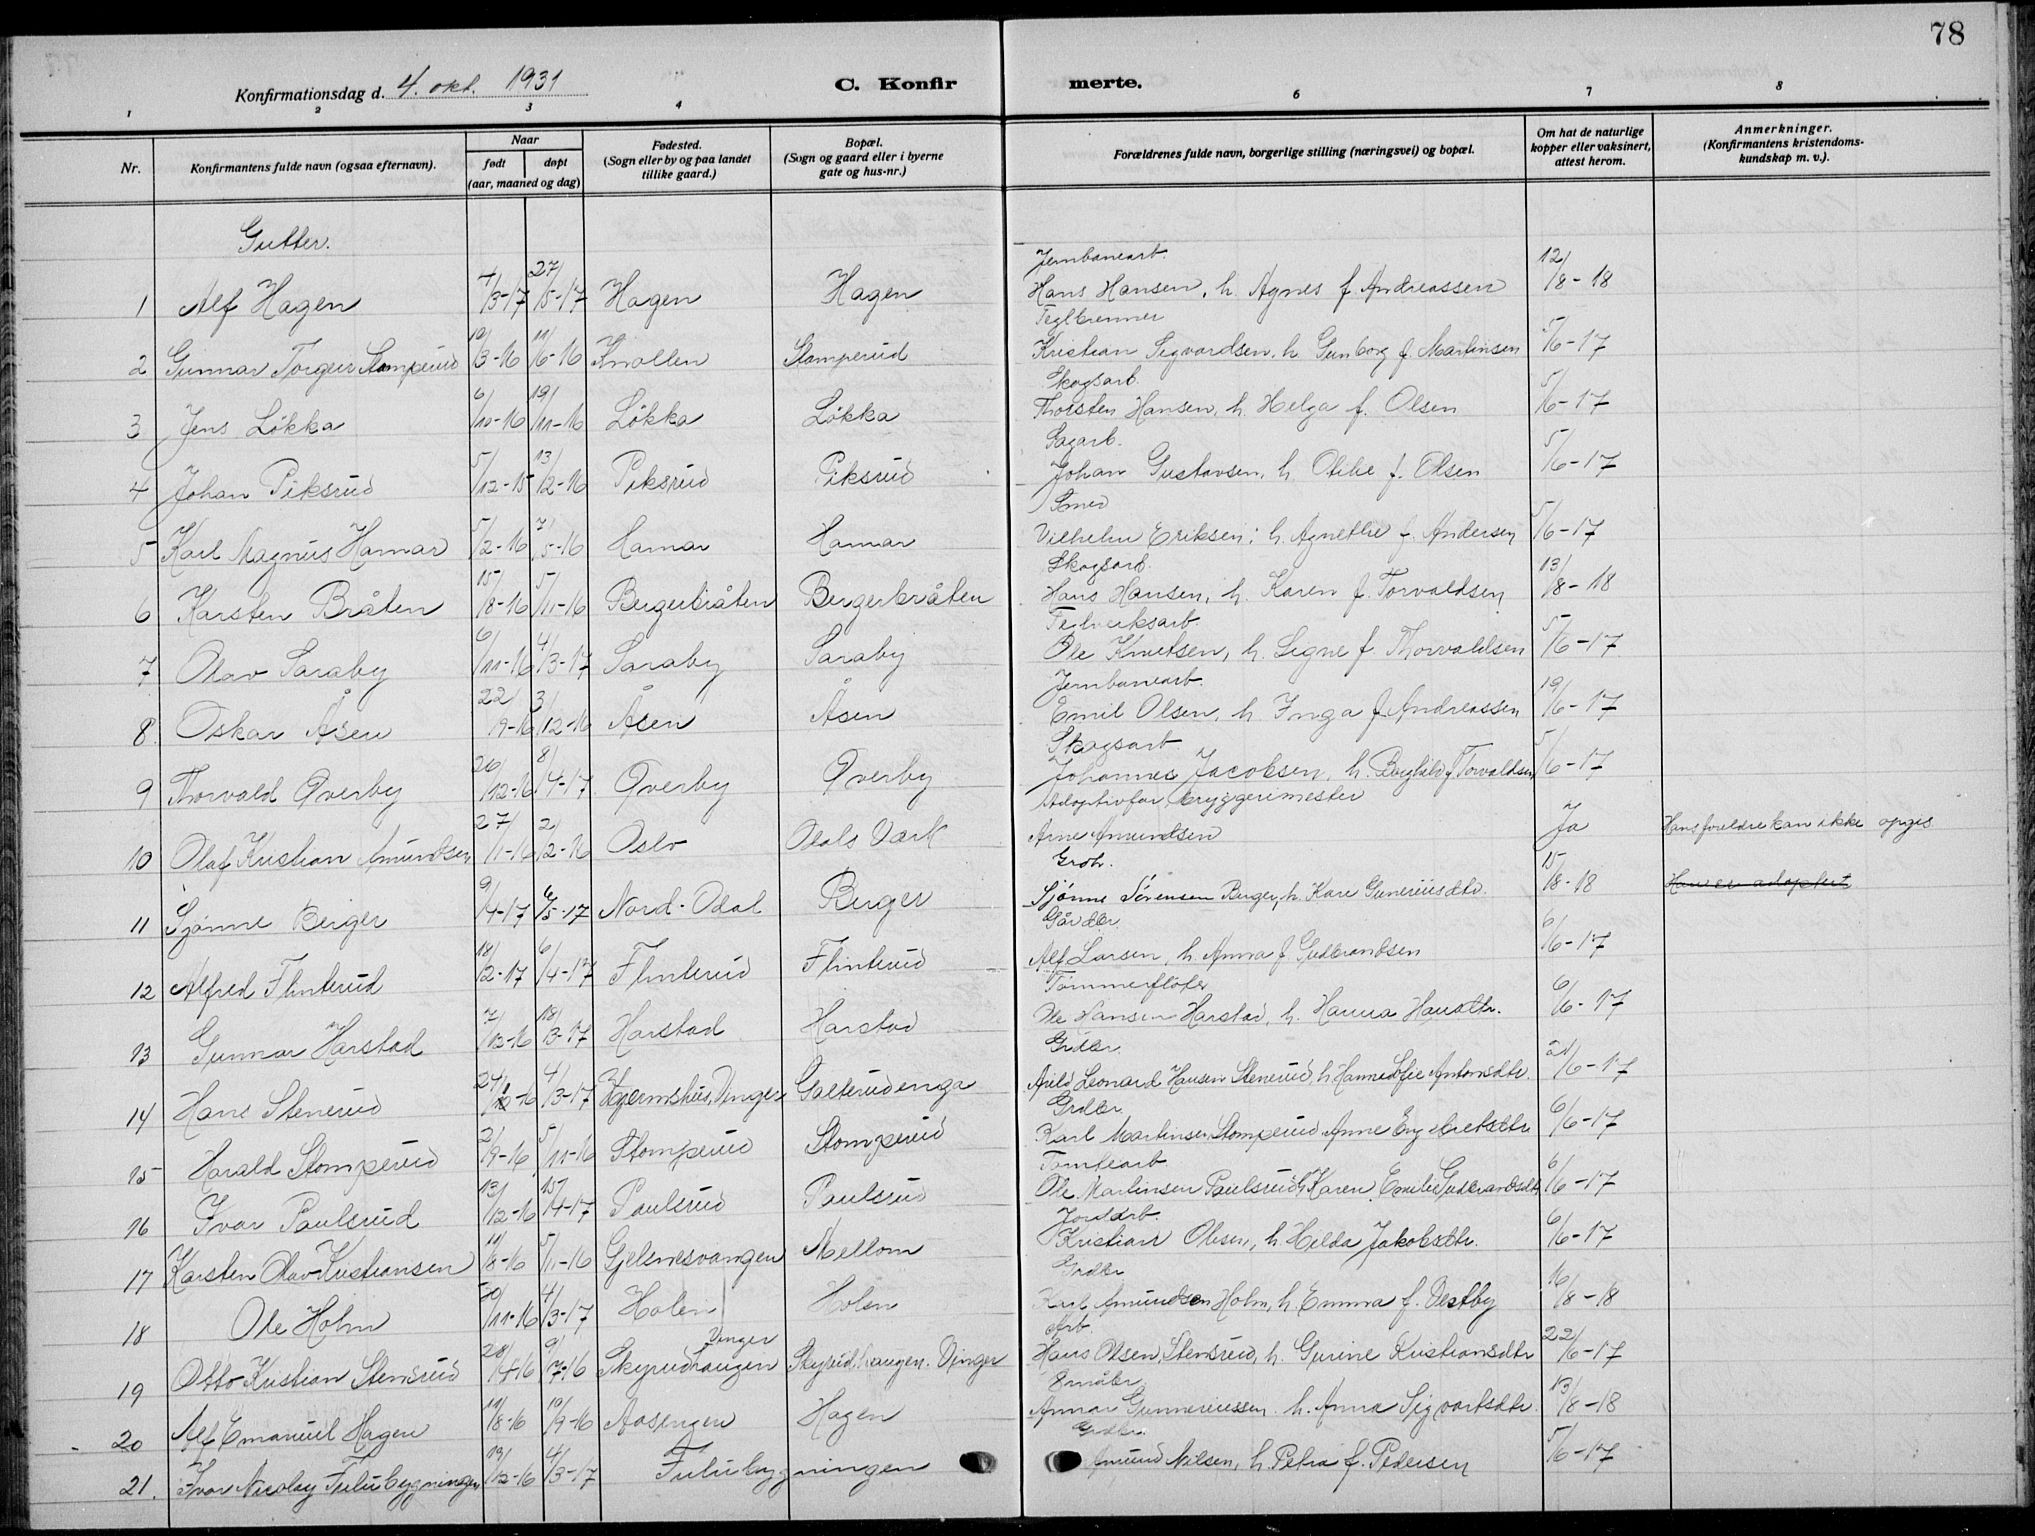 78
Konfirmationsdag d. 4. okt. 1931
C. Konfir merte.
1 2 3 4 6 7 8
Nr. Konfirmantens fulde navn (ogsaa efternavn). Naar født døpt (aar, maaned og dag) Fødested. (Sogn eller by og paa landet tillike gaard.) Bopæl. (Sogn og gaard eller i byerne gate og hus-nr.) Forældrenes fulde navn, borgerlige stilling (næringsvei) og bopæl. Om hat de naturlige kopper eller vaksinert, attest herom. Anmerkninger. (Konfirmantens kristendoms-kundskap m. v.).
Gutter.
Jernbanearb.
1 Alf Hagen 7/3-17 27/5-17 Hagen Hagen Hans Hansen, h. Agnes f. Andreassen 12/8-18
Teglbrenner
2 Gunnar Torgeir Stomperud 12/3-16 11/6-16 Knollen Stomperud Kristian Sigvardsen, h. Gunborg f. Martinsen 5/6-17
Skogsarb.
3 Jens Løkka 6/10-16 19/11-16 Løkka Løkka Thorsten Hansen, h. Helga f. Olsen 5/6-17
Sagarb.
4 Johan Piksrud 5/12-15 13/2-16 Piksrud Piksrud Johan Gustavsen, h. Otilie f. Olsen 5/6-17
Smed
5 Karl Magnus Hamar 5/2-16 7/5-16 Hamar Hamar Vilhelm Eriksen; h. Agnethe f. Andersen 5/6-17
Skogsarb.
6 Karsten Bråten 15/8-16 5/11-16 Bergerbråten Bergerbråten Hans Hansen, h. Karen f. Torvaldsen 13/8-18
Teglverksarb.
7 Olav Saraby 6/11-16 4/3-17 Saraby Saraby Ole Knutsen, h. Signe f. Thorvaldsen 5/6-17
Jernbanearb.
8. Oskar Åsen 22/9-16 3/12-16 Åsen Åsen Emil Olsen, h. Inga f. Andreassen 19/6-17
Skogsarb.
9 Thorvald Øverby 26/12-16 8/4-17 Øverby Øverby Johannes Jacobsen, h. Borghild f Torvaldsen 5/6-17
Adoptivfar, bryggerimester
10 Olaf Kristian Amundsen 27/1-16 2/2-16 Oslo Odals Værk Arne Amundsen Ja Hans foreldre kan ikke opgis
Grdb.
11 Sjønne Berger 9/4-17 6/5-17 Nord-Odal Berger Sjønne Sørensen Berger, h. Kare Gunneriusdtr. 15/8-18 Han er adoptert
Gårdbr.
12 Alfred Flinterud 18/2-17 6/4-17 Flinterud Flinterud Alf Larsen, h. Anna f. Gudbrandsen 6/6-17
Tømmerfløter
13 Gunnar Harstad 7/12-16 18/3-17 Harstad Harstad Ole Hansen Harstad, h. Hanna Hansdtr. 6/6-17
Grdbr.
14 Hans Stenerud 24/12-16 4/3-17 Hjermshus, Vinger Galterudenga Arild Leonard Hansen Stenerud, h. Hanna Sofie Antonsdtr. 21/6-17
Grdbr.
15 Harald Stomperud 2/9-16 5/11-16 Stomperud Stomperud Karl Martinsen Stomperud Anne Engebretsdtr 6/6-17
Tomtearb.
16 Ivar Paulsrud 13/12-16 15/4-17 Paulsrud Paulsrud Ole Martinsen Paulsrud h Karen Emilie Gudbrandsdtr 6/6-17
Jordarb.
17 Karsten Olav Kristiansen 11/8-16 5/11-16 Gjelsnesvangen Mellom Kristian Olsen, h. Hilda Jakobsdtr. 6/6-17
Grdbr
18 Ole Holm 30/11-16 4/3-17 Holen Holen Karl Amundsen Holm, h. Emma f. Vestby 16/8-18
Arb.
19 Otto Kristian Stensrud 28/4-16 9/7-16 Skyrudhaugen Vinger Skyrudhaugen. Vinger Hans Olsen Stensrud, h. Gurine Kristiansdtr 22/6-17
Småbr.
20 Alf Emanuel Hagen 11/8-16 10/9-16 Aasengen Hagen Annar Gunneriussen h. Anna Sigvartsdtr. 13/8-18
Grdbr.
21. Ivar Nicolay Fulubygningen 13/12-16 4/3-17 Fulubygningen Amund Nilsen, h. Petra f. Pedersen 5/6-17